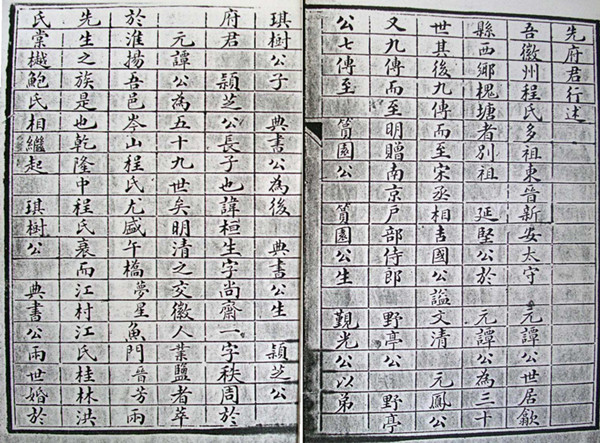 先府君行述
吾徽州程氏多祖東晉新安太守 元譚公世居歙
縣西鄉槐塘者別祖 延堅公於 元譚公為三十
世其後九傳而至宋丞相吉國公謚文清 元鳳公
又九傳而至明贈南京戶部侍郎 野亭公 野亭
公七傳至 篔園公 篔園公生 覲光公公以弟
琪樹公子 典書公為後 典書公生 穎芝公
府君 穎芝公長子也諱桓生字尚齋一字秩周於
元譚公為五十九世矣明清之交徽人業鹽者萃
於淮揚吾邑岑山程氏尤盛午橋夢星魚門晉芳兩
先生之族是也乾隆中程氏衰而江村江氏桂林洪
氏棠樾鮑氏相繼起 琪樹公 典書公兩世婚於